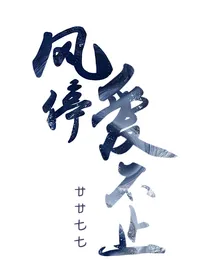 风停
爱不止
廿廿七七